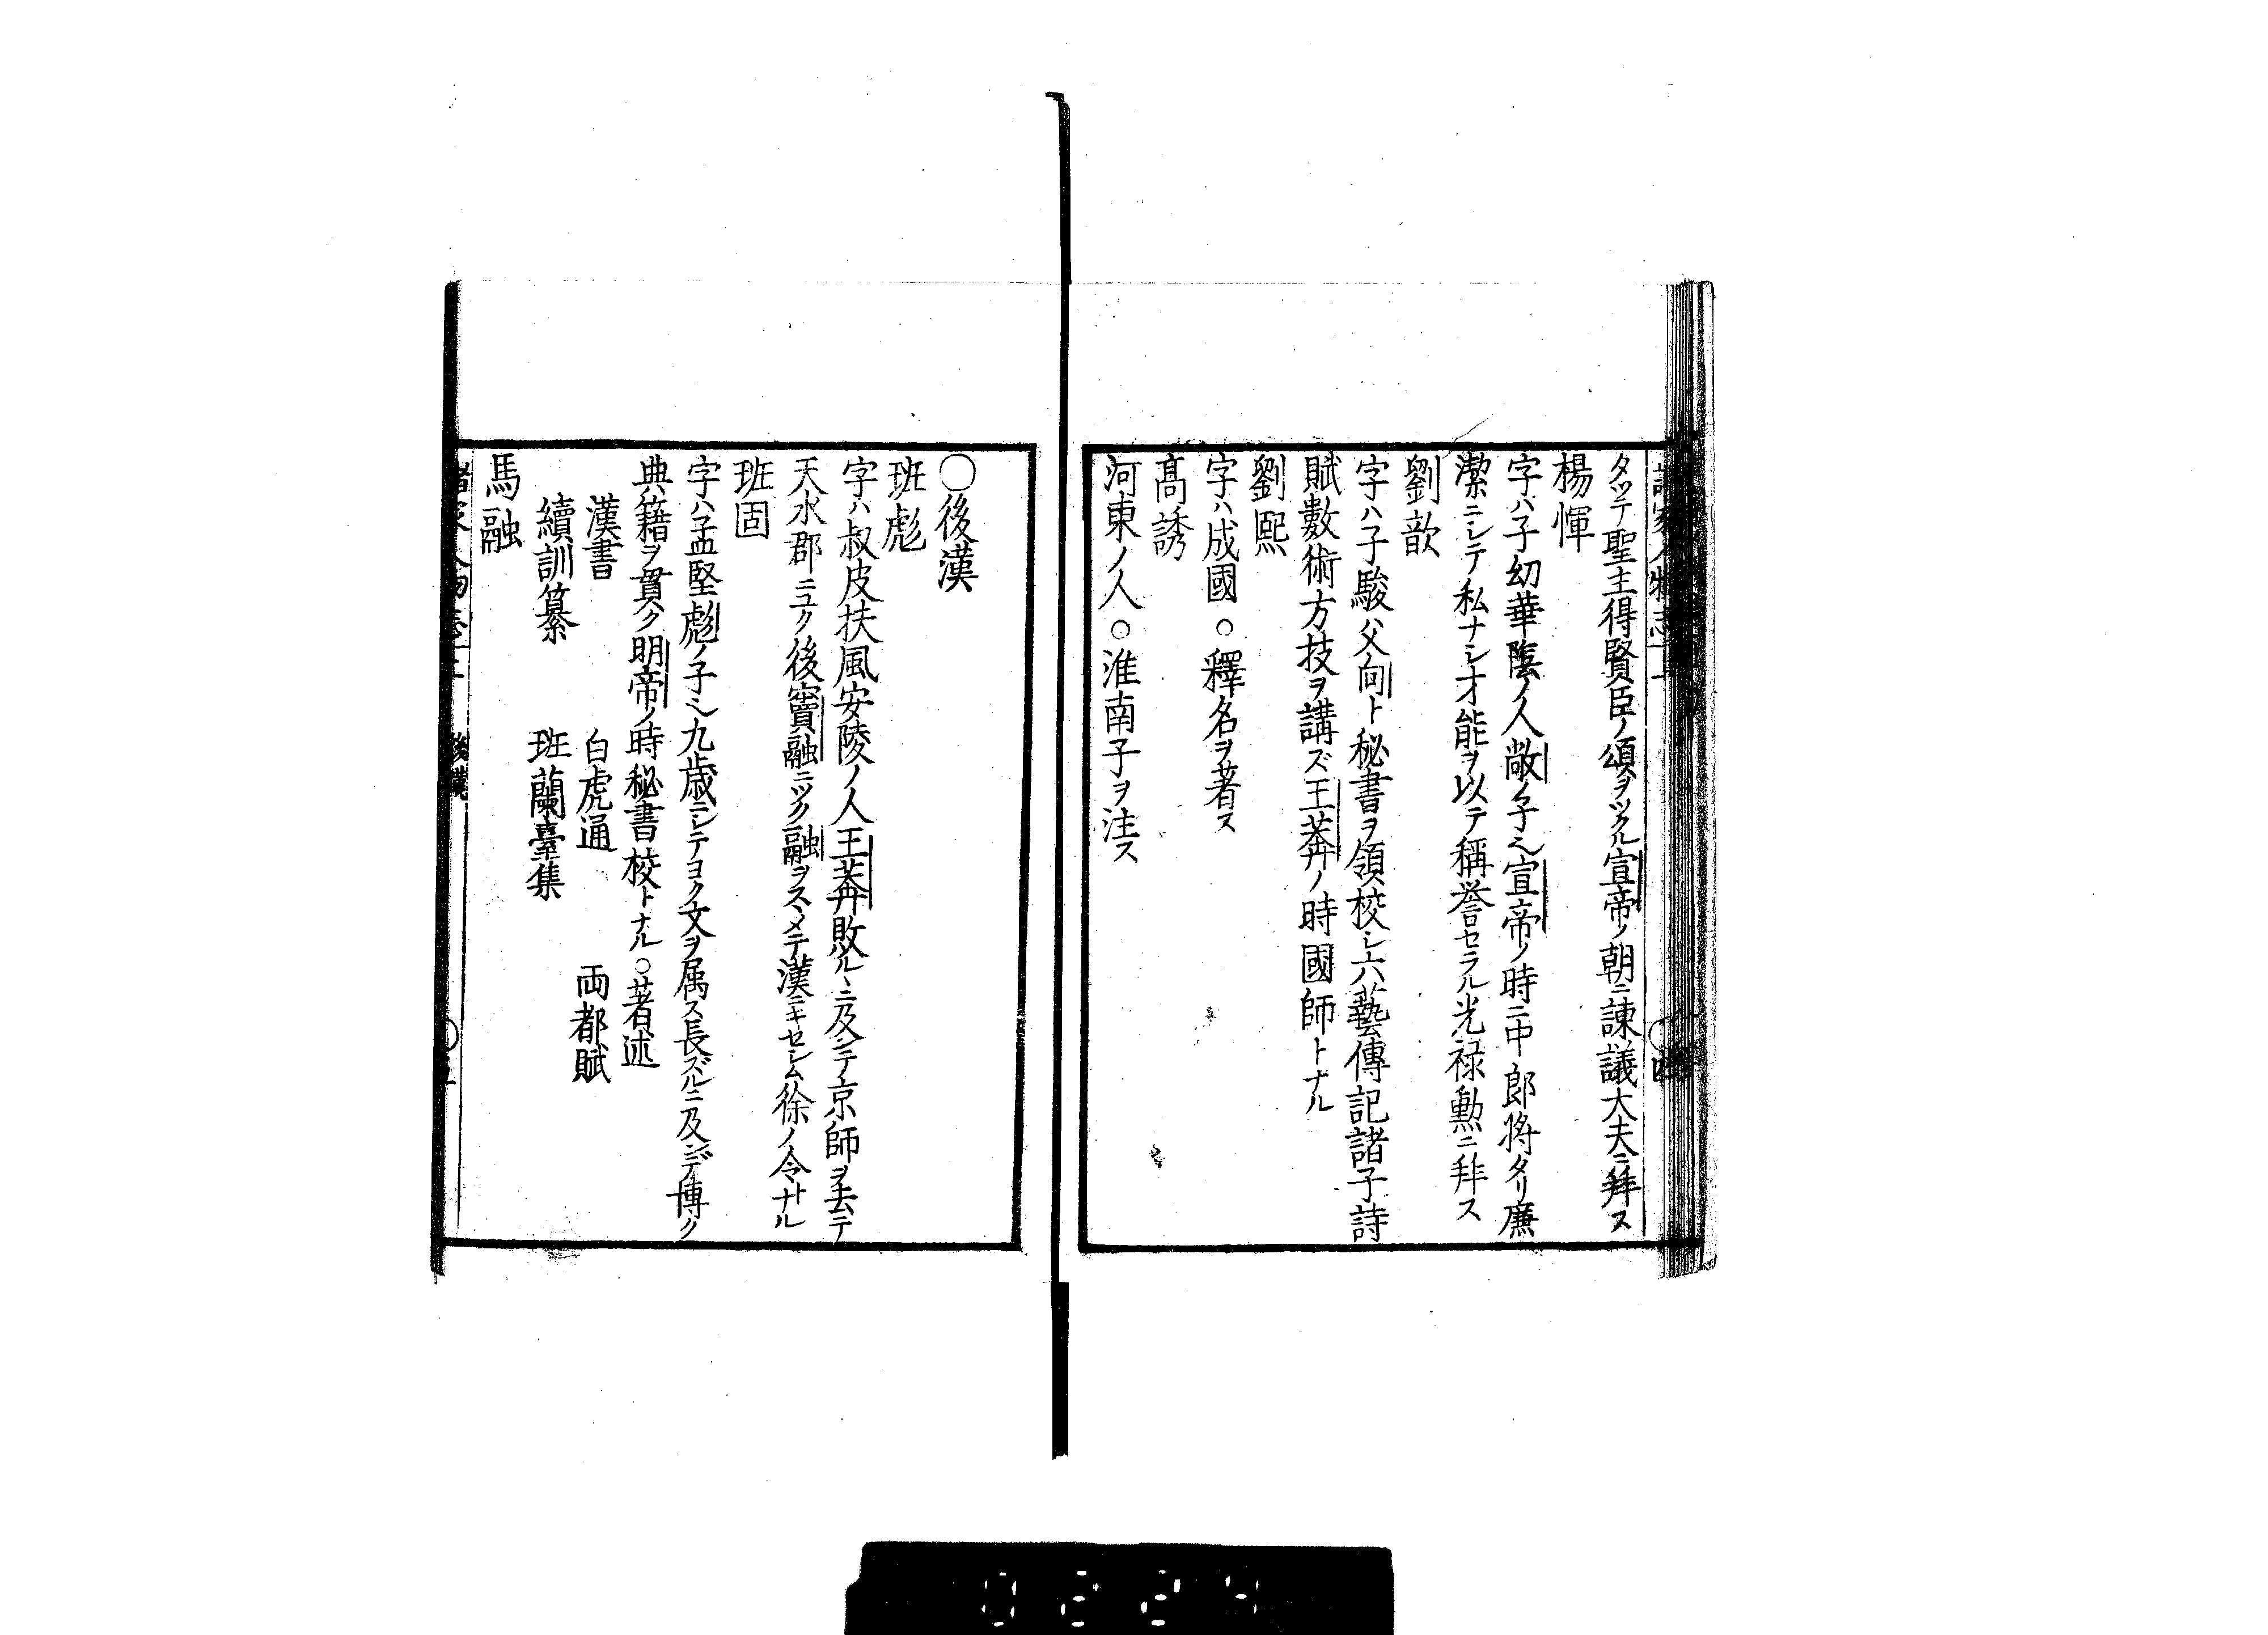 タツテ聖主得賢臣ノ頌ヲツクル宣帝ノ朝ニ諫議大夫ニ拜ス
楊惲
字ハ子幼華陰ノ人敞ノ子也宣帝ノ時ニ中郎將タリ廉
潔ニシテ私ナシ才能ヲ以テ稱誉セラル光禄勲ニ拜ス
劉歆
字ハ子駿父向ト秘書ヲ領校シ六藝傳記諸子詩
賦數術方技ヲ講ズ王莽ノ時國師トナル
劉熙
字ハ成國○釋名ヲ著ス
髙誘
河東ノ人○淮南子ヲ注ス
〇後漢
班彪
字ハ叔皮扶風安陵ノ人王莽敗ルヽニ及テ京師ヲ去テ
天水郡ニユク後竇融ニツク融ヲスヽメテ漢ニキセシム徐ノ令トナル
班固
字ハ孟堅彪ノ子也九歳ニシテヨク文ヲ属ス長ズルニ及ンデ博ク
典籍ヲ貫ク明帝ノ時秘書校トナル○著述
漢書 白虎通 両都賦
續訓纂 班蘭臺集
馬融
後漢